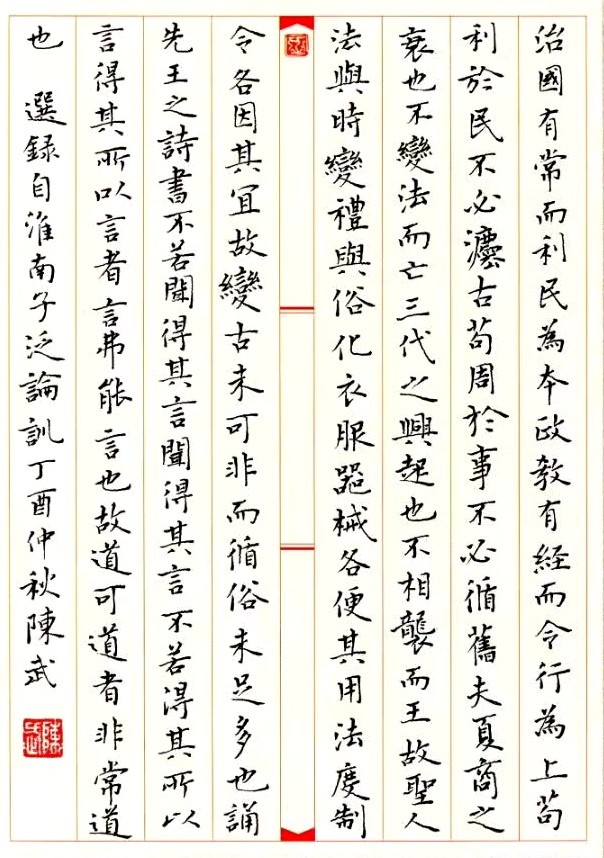 治國有常而利民為本政教有經而令行為上苟
利於民不必灋古苟周於事不必循舊夫夏商之
衰也不變法而亡三代之興起也不相襲而王故聖人
法與時變禮與俗化衣服器械各便其用法度制
令各因其宜故變古未可非而循俗未足多也誦
先王之詩書不若聞得其言聞得其言不若得其所以
言得其所以言者言弗能言也故道可道者非常道
也 選錄自淮南子泛論訓丁酉仲秋陳武